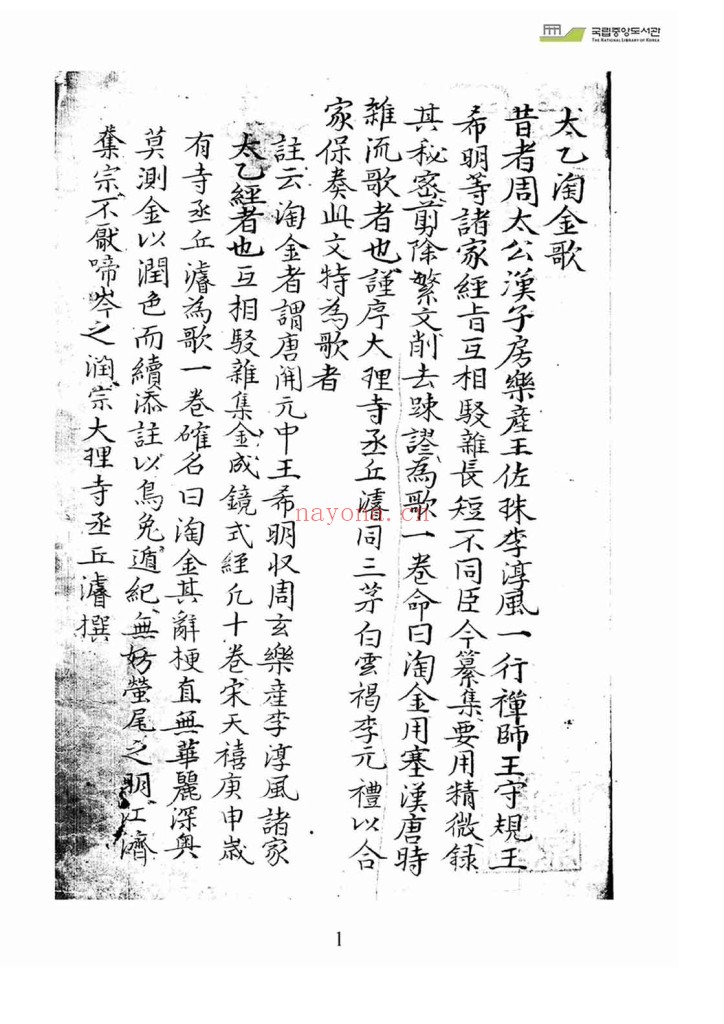 국립중앙도서관
THE NATIONAL LIBRARY OF KOREA
太乙淘金歌
昔者周太公漢子房樂産王佐珠李淳風一行禪師王守規王
希明等諸家經旨互相駁雜長短不同臣今纂集要用精微録
其秘密剪除繁文削去踈謬為歌一卷命曰淘金用塞漢唐時
雜流歌者也謹序大理寺丞丘濬同三茅白雲褐李元禮以合
家保奏此文特為歌者
註云淘金者謂唐開元中王希明収周玄樂産李淳風諸家
太乙經者也互相駁雜集金成鏡式經凢十卷宋天禧庚申嵗
有寺丞丘濬為歌一卷確名曰淘金其辭梗直無華麗深奥
莫測金以潤色而續添註以鳥兔遁紀無妨螢尾之明江濟
集宗不厭啼岑之润宗大理寺丞丘濬撰
nayona.cn
1